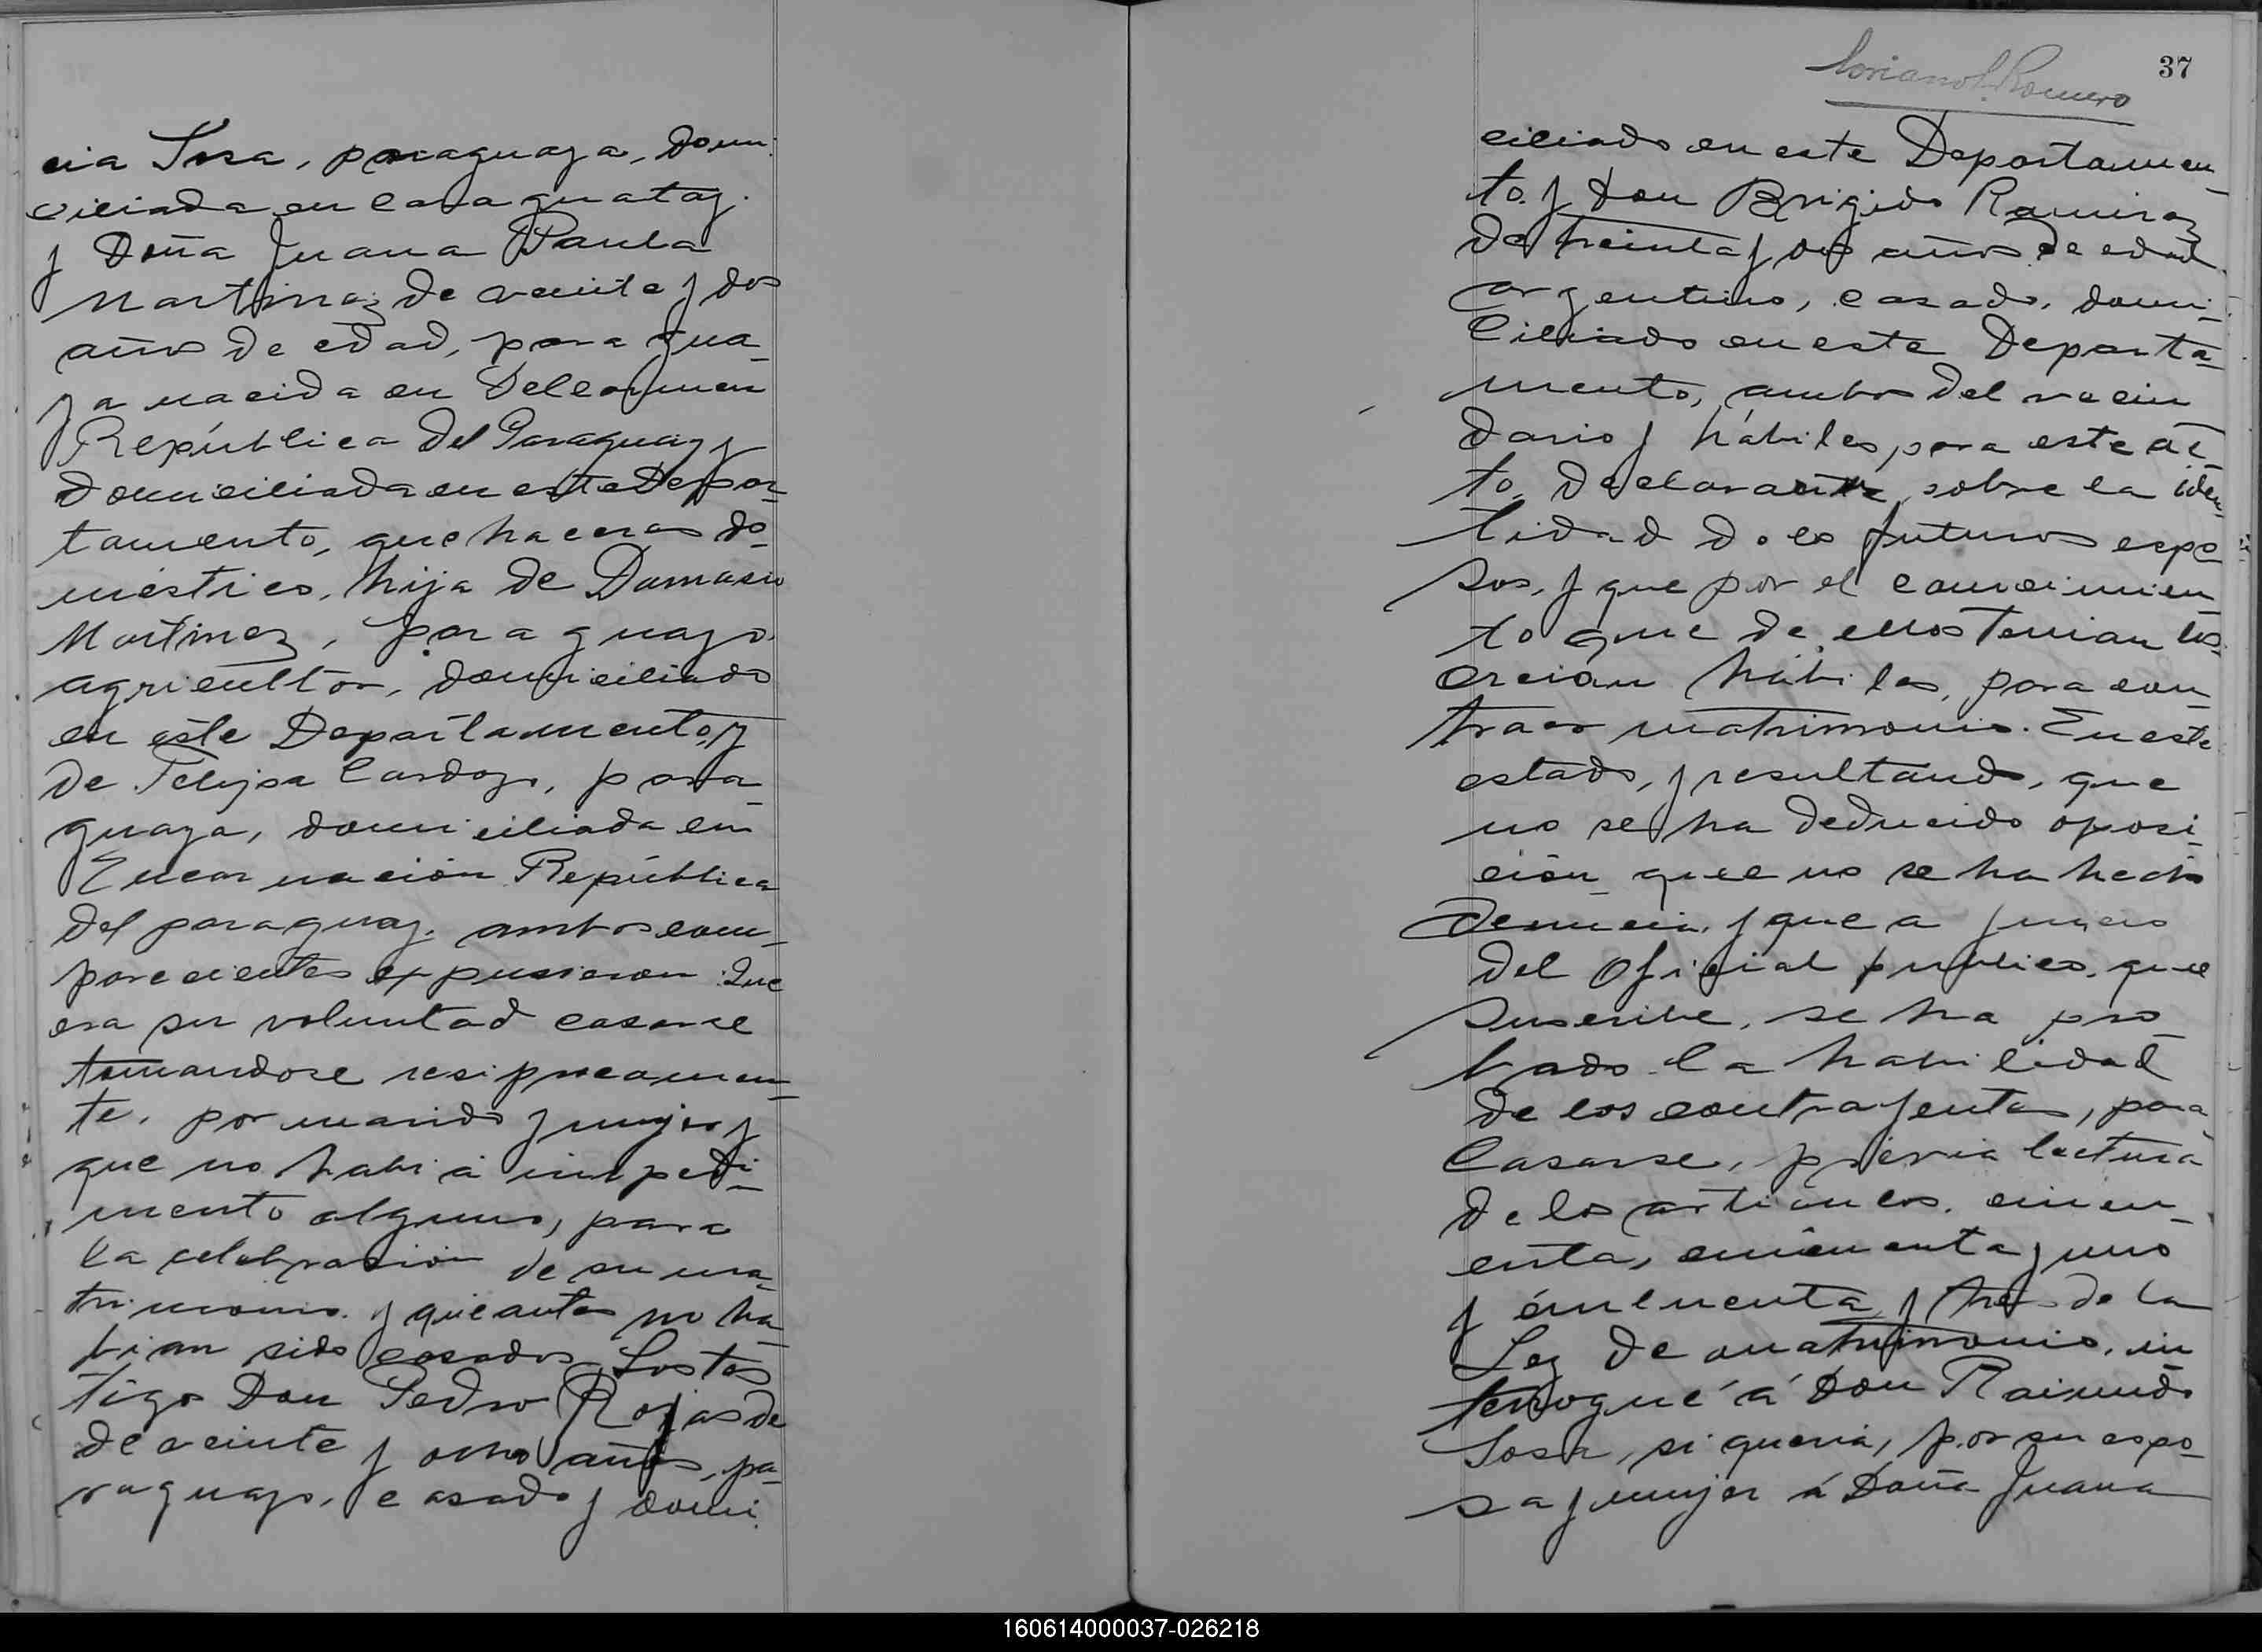 cia Sosa, paraguaya, domi
ciliada en Caraguatay.
y Doña Juana Paula
Martinez de veinte y dos
años de edad, paragua-
ya nacida en Delcarmen
República del Paraguay y
domiciliada en este Depar-
tamento, quehaceres do-
mésticos, hija de Damasio
Martinez, paraguayo
agricultor, domiciliado
en este Departamento, y
de Felipa Cardozo, para-
guaya, domiciliada en
Encarnación República
del paraguay. ambos com-
parecientes expusieron: Que
era su voluntad casarse
tomandose resiprocamen-
te, por marido y mujer y
que no habia impedi-
mento alguno, para
la celebración de su ma-
trimonio. y que antes no ha-
bian sido casados. Los tes
tigos Don Pedro Rojas de
de veinte y ocho años, pa-
raguayo, casado y domi
Soriano L. Romero
37
ciliado en este Departamen-
to. y Don Brigido Ramirez
de treinta y dos años de edad.
argentino, casado, domi-
ciliado en este Departa-
mento, ambos del vecin
dario y hábiles para este ac-
to, declararon sobre la iden-
tidad d los futuros espo-
sos, y que por el conocimien-
to que de ellos tenian los
creian hábiles, para con-
traer matrimonio. En este
estado, y resultando, que
no se ha deducido oposi-
ción que no se ha hecho
denuncia, y que a juicio
del oficial publico, que
suscribe, se ha pro-
bado la habilidad
de los contrayentes, para
Casarse, prévia lectura
de los articulos. cincu-
enta, cincuenta y uno
y cincuenta y tres de la
Ley de matrimonio, in
terrogué á Don Raimundo
Sosa, si queria, por su espo-
sa y mujer á Doña Juana
160614000037-026218